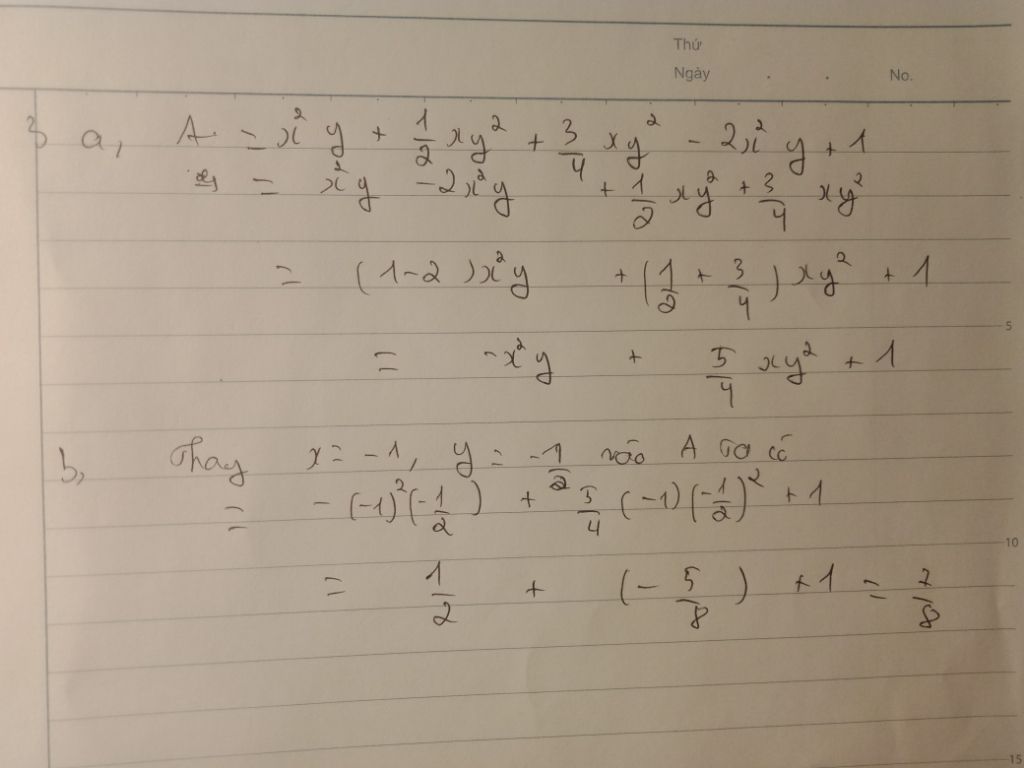 Thứ
Ngày . . No.
3 a, A = x² y + 1/2 xy² + 3/4 xy² - 2x² y + 1
= x²y - 2x²y + 1/2 xy² + 3/4 xy²
= (1-2)x²y + (1/2 + 3/4) xy² + 1
5
= -x²y + 5/4 xy² + 1
b, Thay x = -1, y = -1/2 vào A ta có
= -(-1)²(-1/2) + 5/4 (-1)(-1/2)² + 1
10
= 1/2 + (-5/8) + 1 = 7/8
15